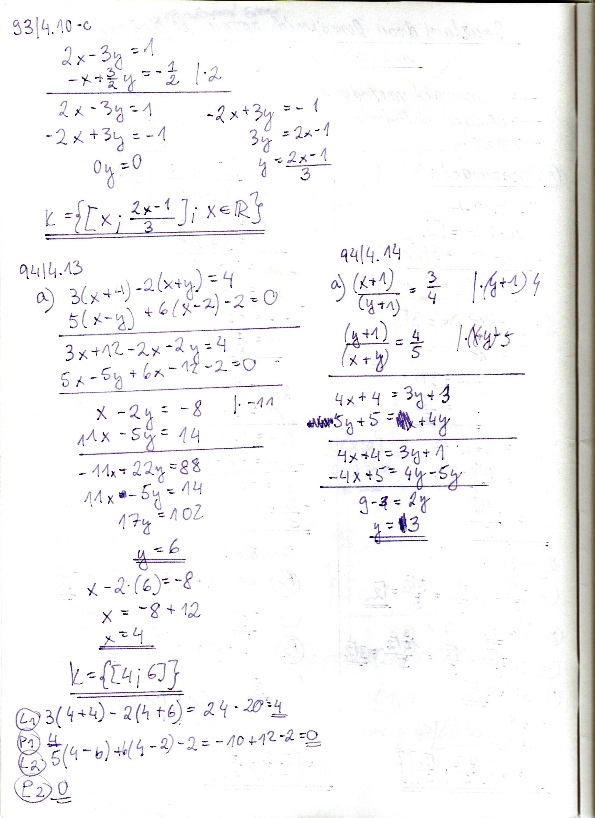 93/4.10-c
2x-3y=1
-x+3/2y=-1/2 /·2
2x-3y=1
-2x+3y=-1
0y=0
-2x+3y=-1
3y=2x-1
y=2x-1/3
K={[x; 2x-1/3]; x∈ℝ}
94/4.13
a) 3(x+4)-2(x+y)=4
5(x-y)+6(x-2)-2=0
3x+12-2x-2y=4
5x-5y+6x-12-2=0
x-2y=-8 /·-11
11x-5y=14
-11x+22y=88
11x-5y=14
17y=102
y=6
x-2·(6)=-8
x=-8+12
x=4
K={[4;6]}
L1 3(4+4)-2(4+6)=24-20=4
P1 4
L2 5(4-6)+6(4-2)-2=-10+12-2=0
P2 0
94/4.14
a) (x+1)/(y+1)=3/4 /·(y+1)4
(y+1)/(x+y)=4/5
4x+4=3y+3
5y+5= x+4y
4x+4=3y+1
-4x+5=4y-5y
=2y
y=3